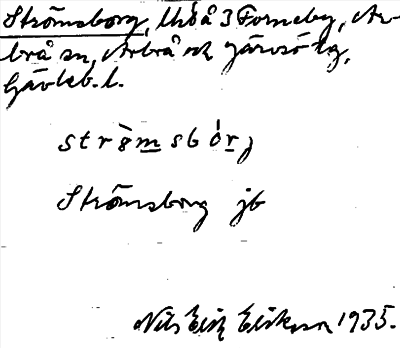 Strömsborg, lht å 3 Forneby, Ar-
brå sn, Arbrå och Järvsö tg,
Gävleb. l.
strömsbórj
Strömsborg jb
Nils Erik Eriksson 1935.